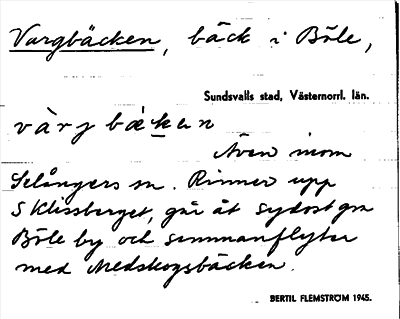 Vargbäcken, bäck i Böle,
Sundsvalls stad, Västernorrl. län.
vàrjbäkən
Även inom
Selångers sn. Rinner upp
S Klissberget, går åt sydost gm
Böle by och sammanflyter
med Medskogsbäcken.
BERTIL FLEMSTRÖM 1945.